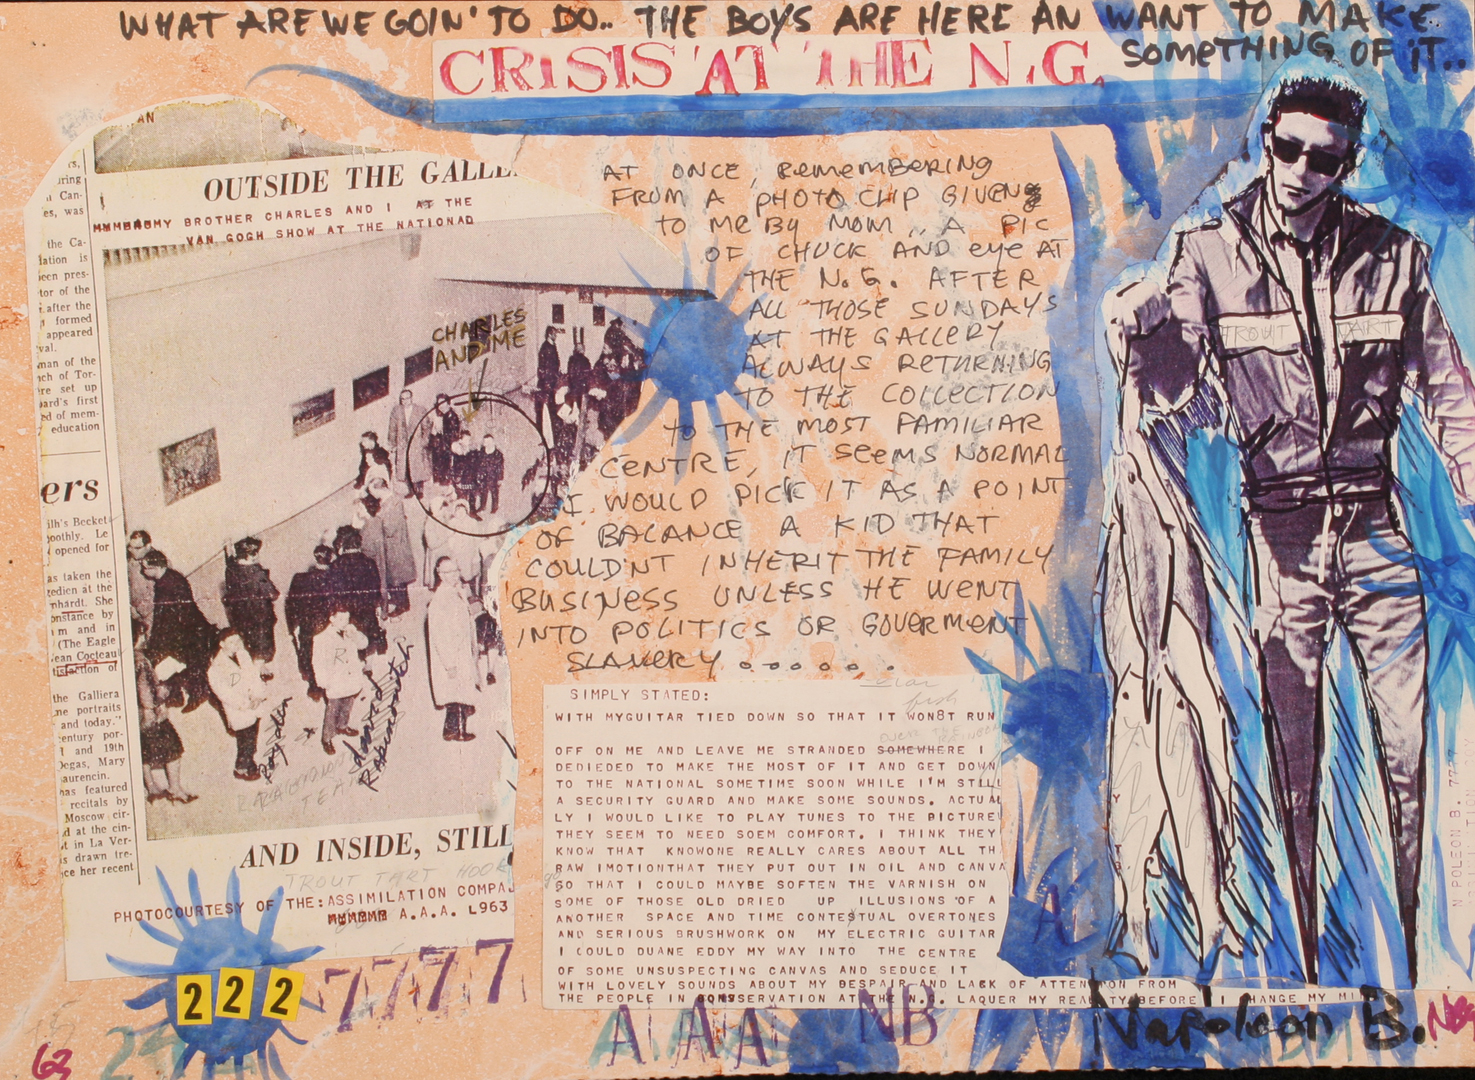 WHAT ARE WE GOIN' TO DO.. THE BOYS ARE HERE AN WANT TO MAKE
SOMETHING OF IT..
CRISIS AT THE N.G.
AN
OUTSIDE THE GALLE
MY BROTHER CHARLES AND I AT THE
VAN GOGH SHOW AT THE NATIONAD
CHARLES
AND ME
rs,
uring
n Can-
es, was
the Ca-
lation is
een pres-
tor of the
after the
formed
appeared
val.
man of the
ch of Tor-
re set up
ard's first
ed of mem-
education
ers
ilh's Becket
oothly. Le
opened for
as taken the
gedien at the
nhardt. She
onstance by
m and in
(The Eagle
ean Cocteau
tisfaction of
the Galliera
ne portraits
and today."
century por-
1 and 19th
Degas, Mary
aurencin.
has featured
recitals by
Moscow cir-
d at the cin-
t in La Ver-
s drawn ire-
nce her recent
D
R.
David
Rabinowitch
Royden
TEA
AND INSIDE, STILL
TROUT TART HOOK
PHOTOCOURTESY OF THE:ASSIMILATION COMPA
A.A.A. L963
AT ONCE, REMEMBERING
FROM A PHOTO CLIP GIVEN
TO ME BY MOM,, A PIC
OF CHUCK AND eye AT
THE N.G. AFTER
ALL THOSE SUNDAYS
AT THE GALLERY
ALWAYS RETURNING
TO THE COLLECTION
TO THE MOST FAMILIAR
CENTRE, IT SEEMS NORMAL
I WOULD PICK IT AS A POINT
OF BALANCE A KID THAT
COULD'NT INHERIT THE FAMILY
BUSINESS UNLESS HE WENT
INTO POLITICS OR GOVERMENT
SLAVERY . . . . . . .
SIMPLY STATED:
WITH MYGUITAR TIED DOWN SO THAT IT WON8T RUN
OFF ON ME AND LEAVE ME STRANDED SOMEWHERE I
DEDIEDED TO MAKE THE MOST OF IT AND GET DOWN
TO THE NATIONAL SOMETIME SOON WHILE I'M STILL
A SECURITY GUARD AND MAKE SOME SOUNDS. ACTUAL
LY I WOULD LIKE TO PLAY TUNES TO THE PICTURE
THEY SEEM TO NEED SOEM COMFORT. I THINK THEY
KNOW THAT KNOWONE REALLY CARES ABOUT ALL TH
RAW IMOTIONTHAT THEY PUT OUT IN OIL AND CANVA
SO THAT I COULD MAYBE SOFTEN THE VARNISH ON
SOME OF THOSE OLD DRIED UP ILLUSIONS OF A
ANOTHER SPACE AND TIME CONTESTUAL OVERTONES
AND SERIOUS BRUSHWORK ON MY ELECTRIC GUITAR
I COULD DUANE EDDY MY WAY INTO THE CENTRE
OF SOME UNSUSPECTING CANVAS AND SEDUCE IT
WITH LOVELY SOUNDS ABOUT MY DESPAIR AND LACK OF ATTENTION FROM
THE PEOPLE IN CONSERVATION AT THE N.G. LAQUER MY REALITY BEFORE I CHANGE MY MI
TROUT TART
222
7777
A A A NB
A
Napoleon B.
NB
63
N POLEON B. 7777